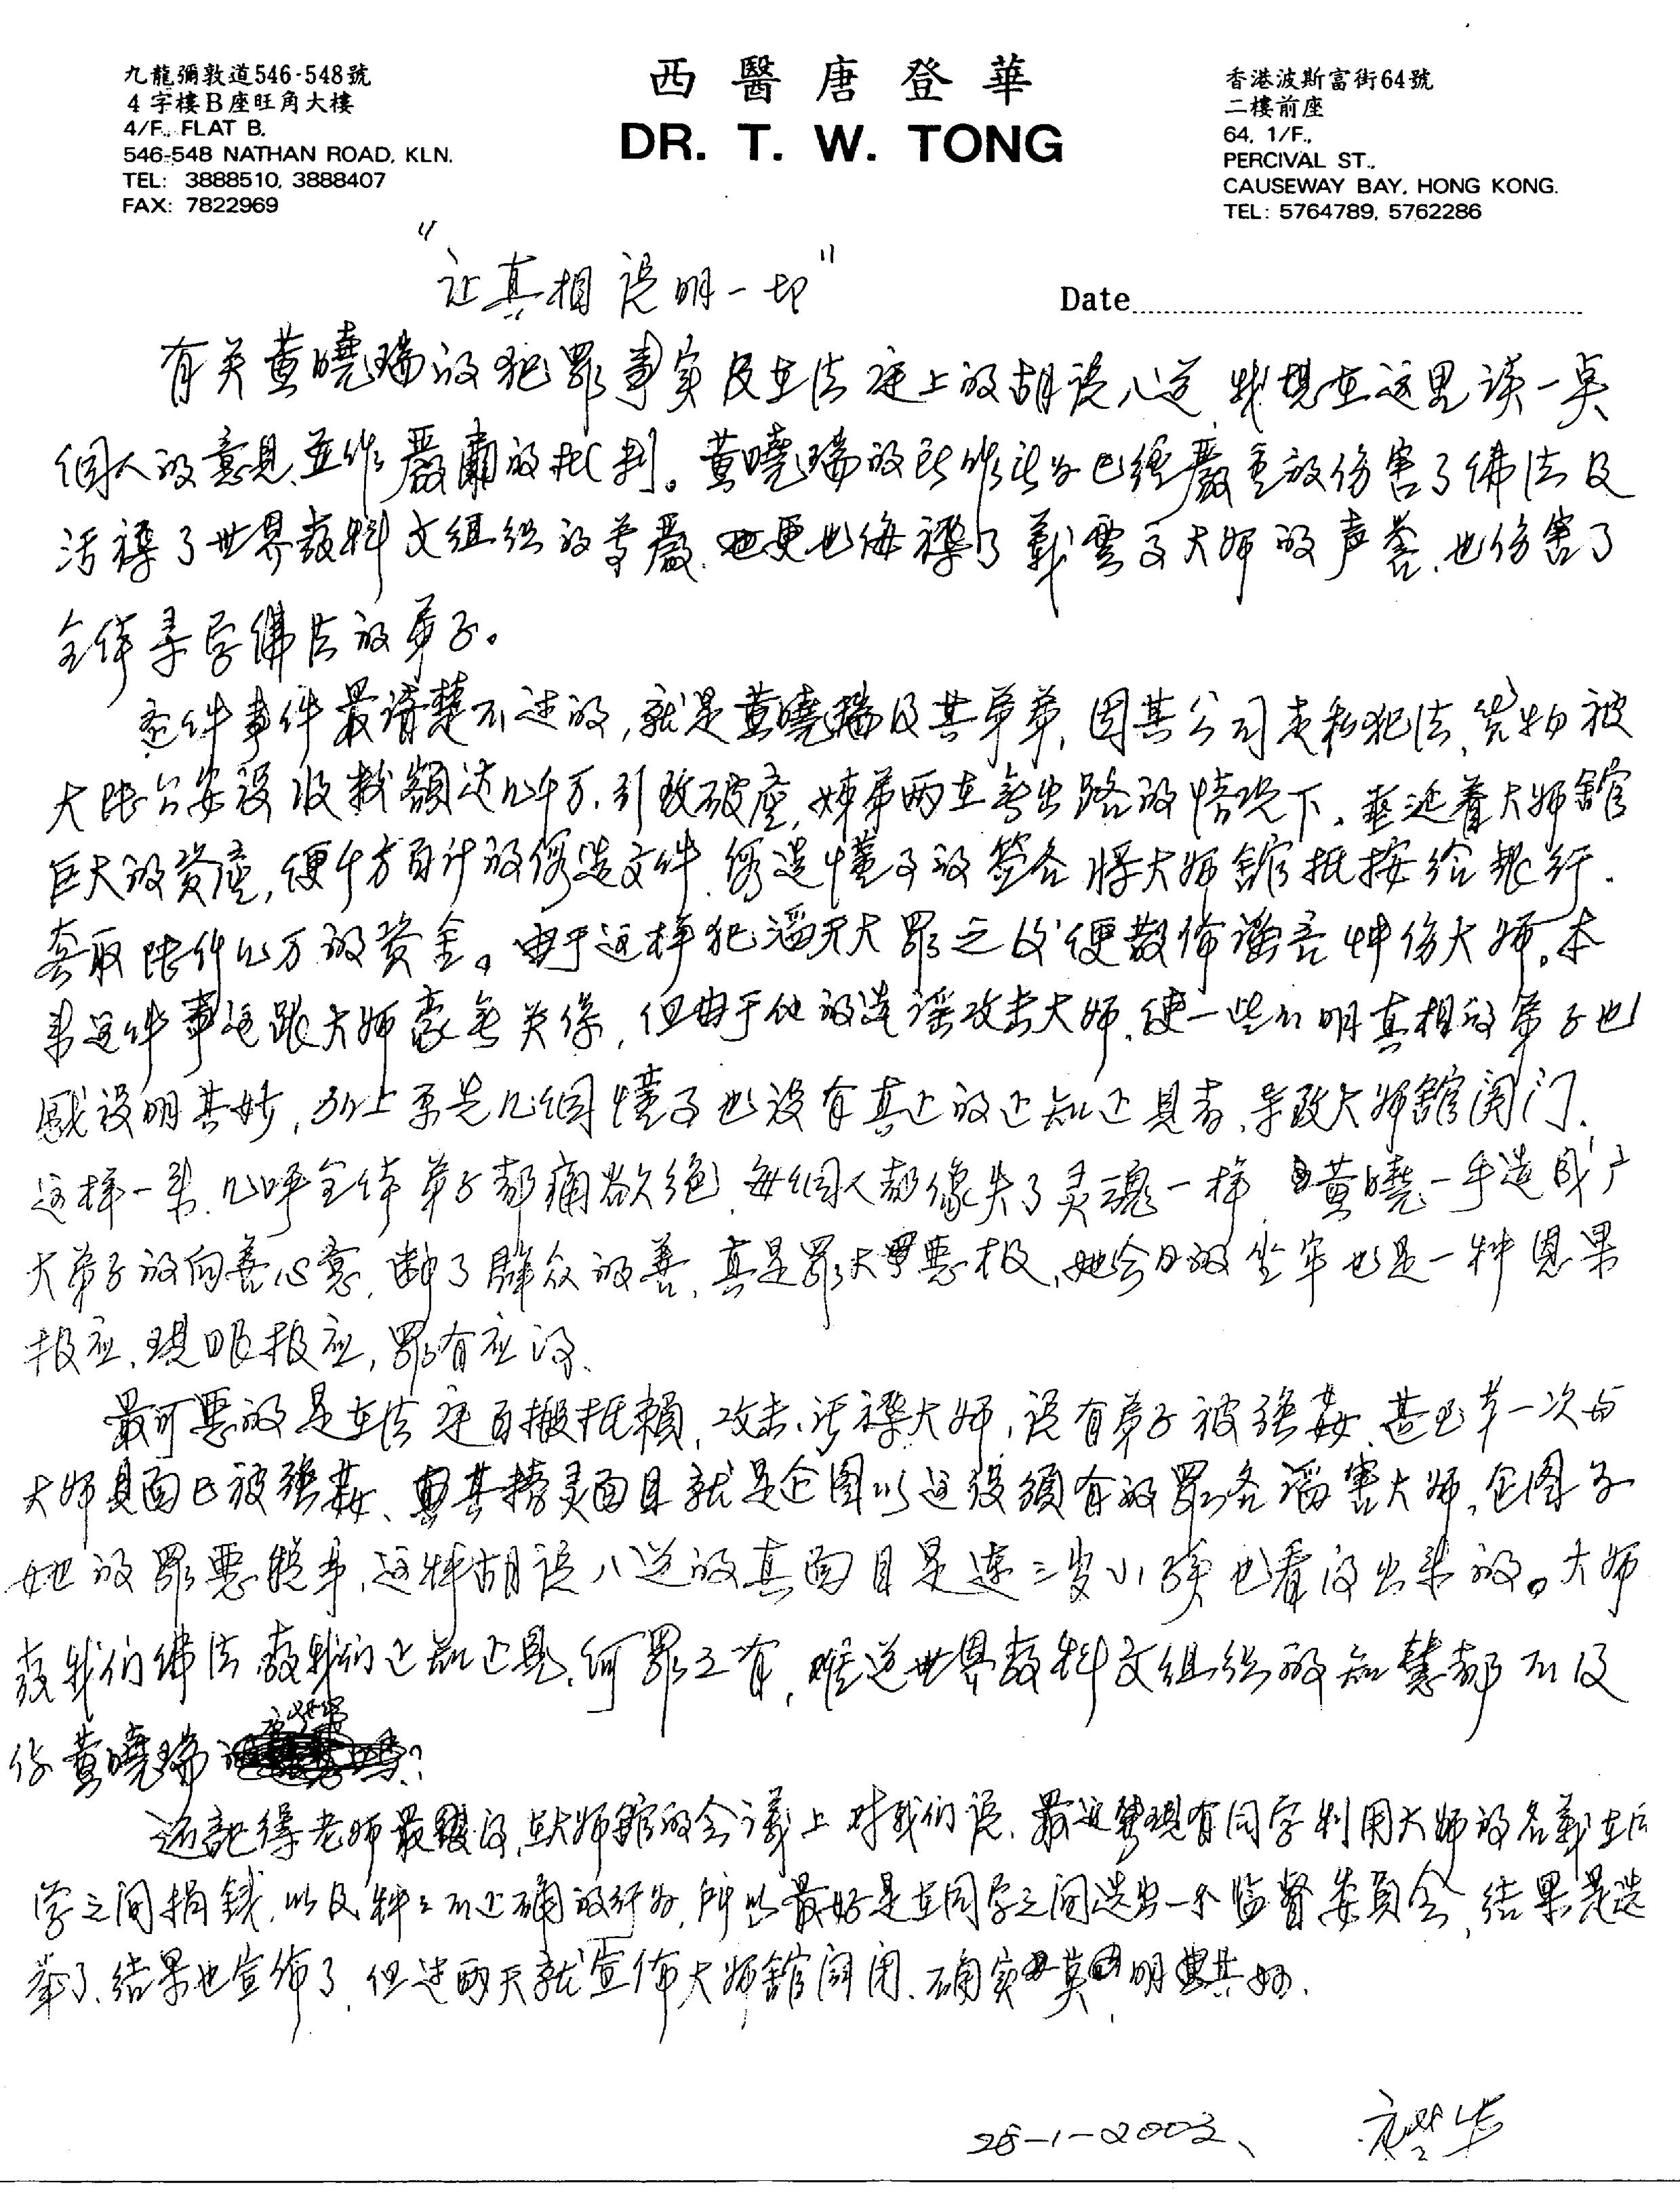 九龍彌敦道546-548號
4字樓B座旺角大樓
4/F., FLAT B,
546-548 NATHAN ROAD, KLN.
TEL: 3888510, 3888407
FAX: 7822969
西醫唐登華
DR. T. W. TONG
香港波斯富街64號
二樓前座
64, 1/F.,
PERCIVAL ST.,
CAUSEWAY BAY, HONG KONG.
TEL: 5764789, 5762286
"让真相说明一切"
Date
有关黄曉瑞的犯罪事实及在法庭上的胡说八道,我想在这里谈一点
個人的意見,並作嚴肅的批判。黄曉瑞的所作所为已經嚴重的伤害了佛法及
污辱了世界教科文组织的尊嚴,更也侮辱了義雲高大师的声誉,也伤害了
全体寻学佛法的弟子。
这件事件最清楚不过的,就是黄曉瑞及其弟弟,因其公司走私犯法,货物被
大陆公安没收,数額达几千万,引致破產,姊弟两在無出路的情况下,垂涎着大师舘
巨大的资產,便千方百计的伪造文件,伪造懂事的签名将大师舘抵按给銀行,
套取陆仟几万的资金。由于这样犯滔天大罪之後便散佈谣言中伤大师。本
来这件事这跟大师豪無关係,但由于他的造谣攻击大师,使一些不明真相的弟子也
感设明其妙,加上原先几個懂事也没有真正的正知正見者,导致大师舘関门,
这样一来,几呼全体弟子都痛欲绝,每個人都像失了灵魂一样,黄曉一手造成广
大弟子的向善心意,断了群众的善,真是罪大惡极,她今日的坐牢也是一种恩果
报应,現眼报应,罪有应得。
最可惡的是在法庭百搬抵賴,攻击,污辱大师,说有弟子被强姦,甚至苐一次与
大师見面已被强姦,其掙灵面目就是企图以这没须有的罪名滔害大师,企图为
她的罪惡脱身,这种胡说八道的真面目是连三岁小孩也看得出来的。大师
教我们佛法,教我们正知正見,何罪之有,唯道世界教科文组织的知慧都不及
你黄曉瑞吗?
还記得老师最後的,在大师舘的会議上对我们说,最近發現有同学利用大师的名義在同
学之间捐錢,以及种々不正确的行为,所以最好是在同学之间选出一个监督委員会,结果是选
举了,结果也宣佈了,但过两天就宣佈大师舘関闭,确实莫明其妙.
28-1-2003、
唐登华